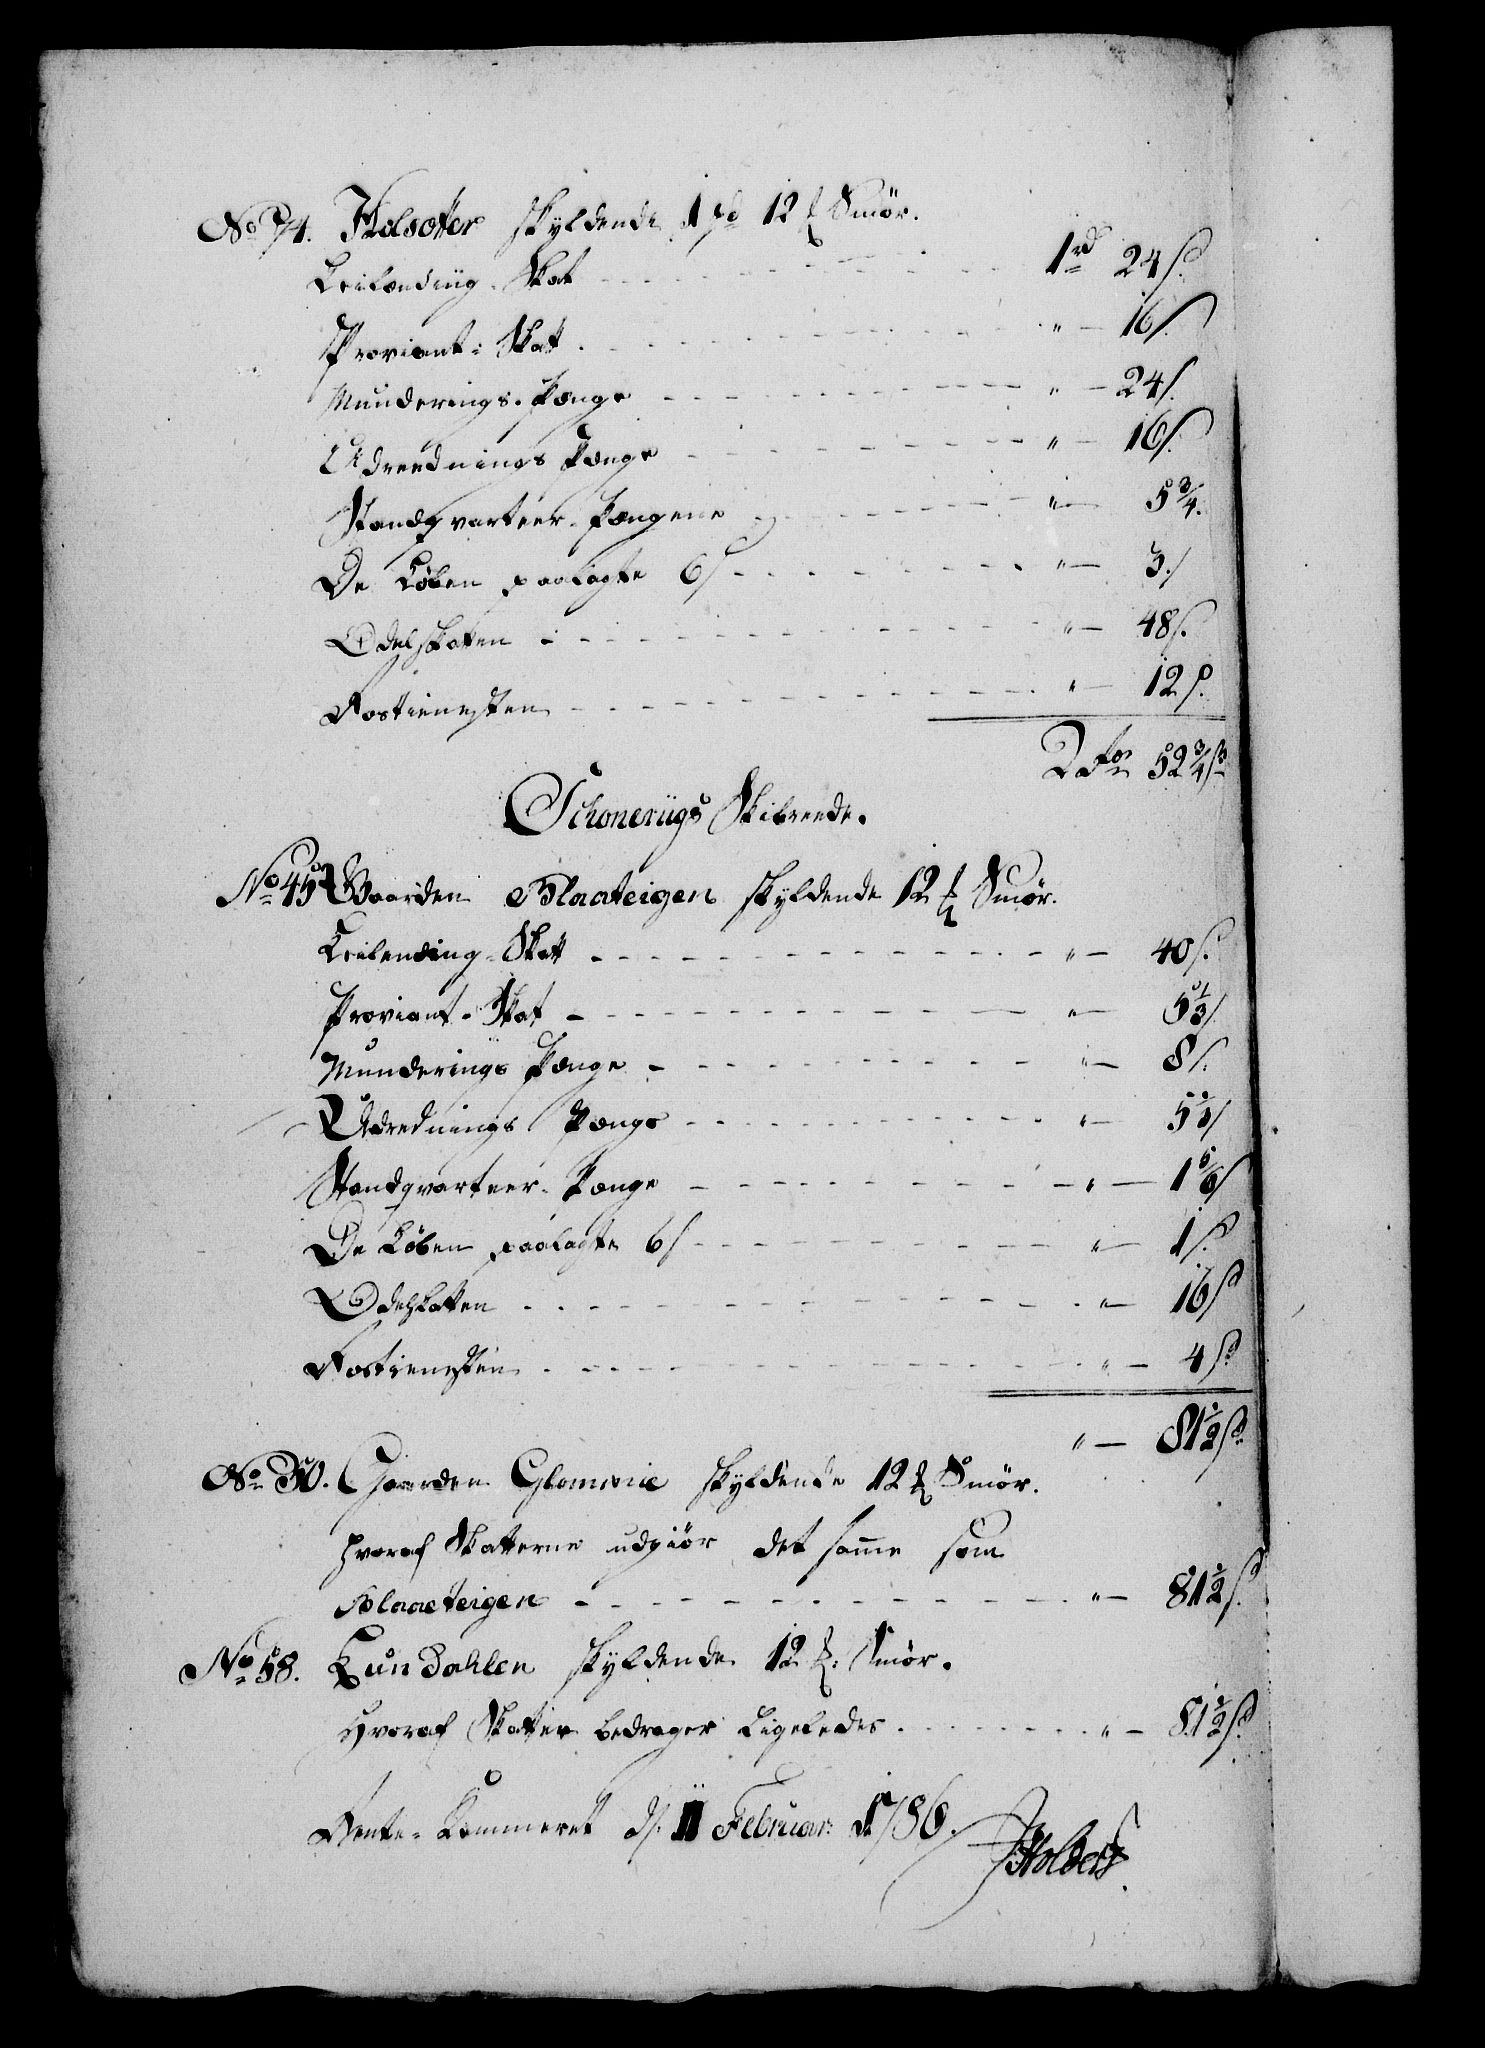 No 74. Holsæter skyldende 1 pd 12 ℔ Smör.
Leilænding-Skat 1rd 24 s.
Proviant-Skat. " 16 s.
Munderings-Penge " 24 s.
Udreednings Penge " 16 s.
Standqvarteer-Pengene " 5 3/4.
De Löben paalagte 6 s " 3 s
Odelskatten " 48 s.
Rostienesten " 12 s.
2 52 3/4 s
Schonerügs Skibreede.
No 45 Gaarden Blaateigen skyldende 12 ℔ Smör.
Leilending-Skatt " 40 s.
Proviant-Skat " 5 1/3 s
Munderings Penge " 8 s.
Udrednings Penge " 5 1/3 s
Standqvarteer-Penge " 1 5/6 s
De Löben paalagte 6 s " 1 s.
Odelskatten " 16 s
Rostienesten " 4 s
" 81 1/2 s
No 50. Gaarden Glomnie skyldende 12 ℔ Smör.
hvoraf Skatterne udgiör det samme som
Blaaeteigen " 81 1/2 s.
No 58. Lundahlen skyldende 12 ℔: Smör.
Hvoraf Skatter bedrager Ligeledes. " 81 1/2 s.
Rente-Kammeret d. 11 Februar: 1786.
Holbert